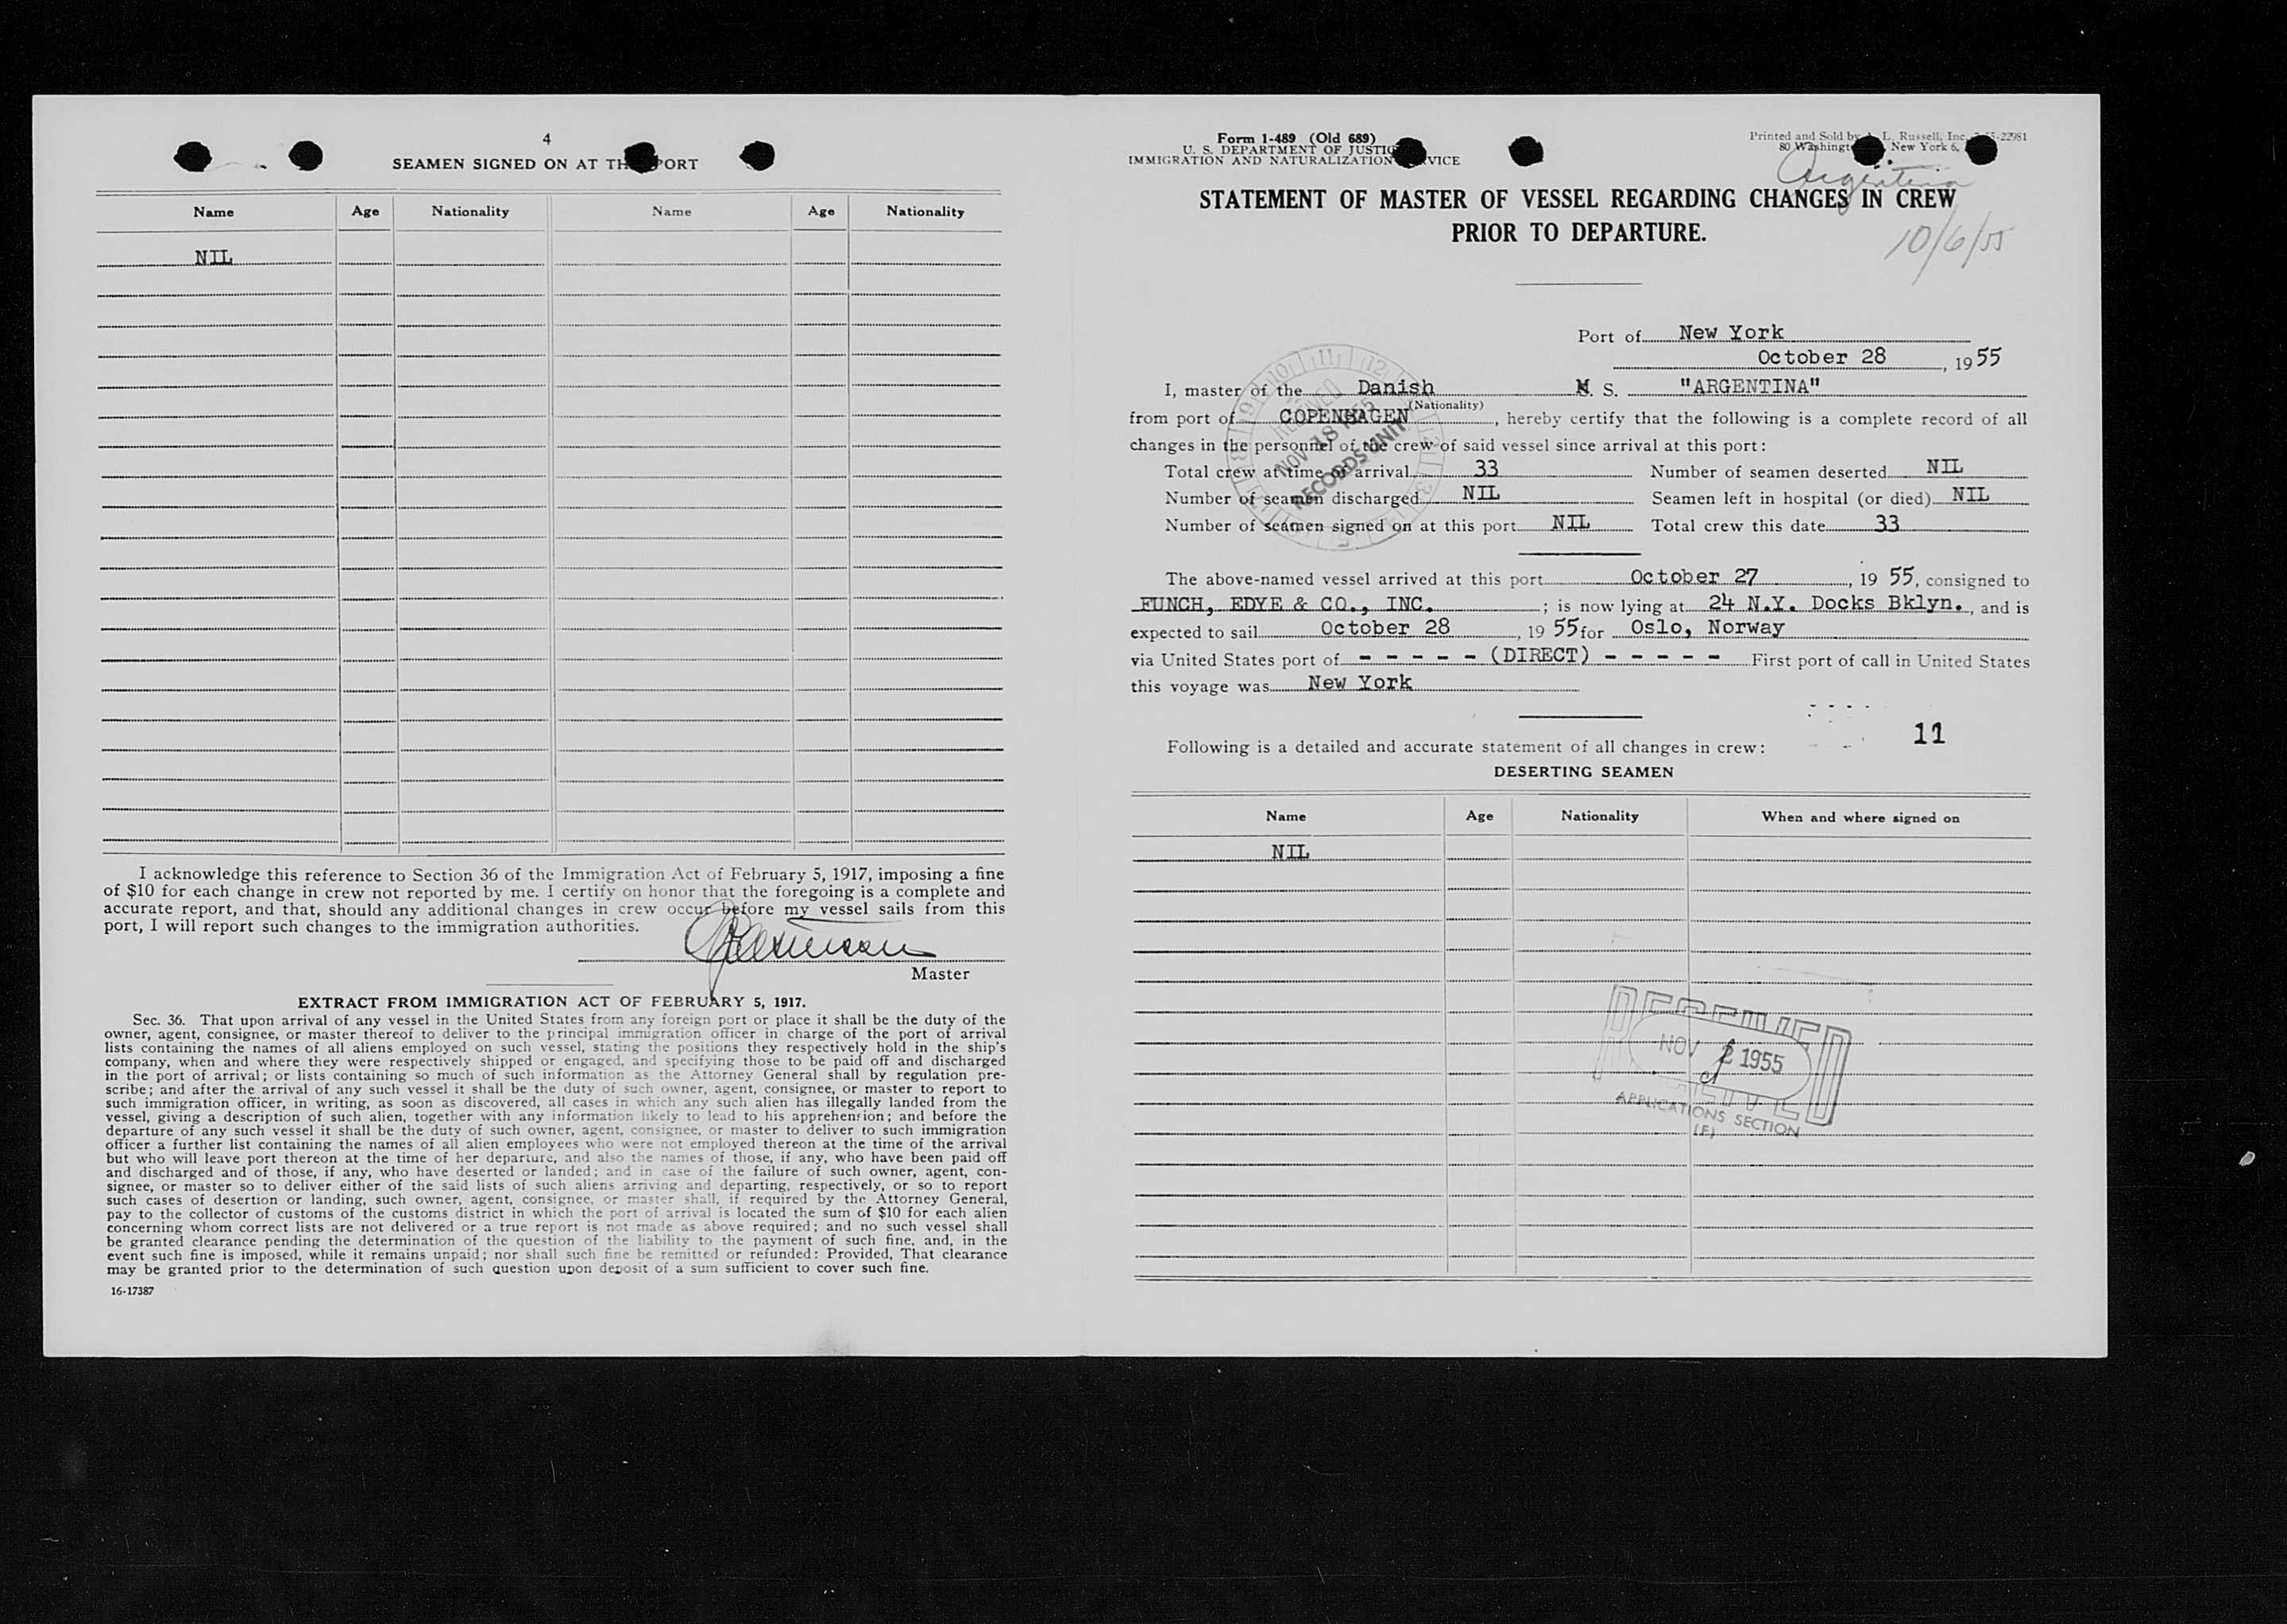 4
SEAMEN SIGNED ON AT TH PORT
Name Age Nationality Name Age Nationality
NIL
I acknowledge this reference to Section 36 of the Immigration Act of February 5, 1917, imposing a fine
of $10 for each change in crew not reported by me. I certify on honor that the foregoing is a complete and
accurate report, and that, should any additional changes in crew occur before my vessel sails from this
port, I will report such changes to the immigration authorities.
Master
EXTRACT FROM IMMIGRATION ACT OF FEBRUARY 5, 1917.
Sec. 36. That upon arrival of any vessel in the United States from any foreign port or place it shall be the duty of the
owner, agent, consignee, or master thereof to deliver to the principal immigration officer in charge of the port of arrival
lists containing the names of all aliens employed on such vessel, stating the positions they respectively hold in the ship's
company, when and where they were respectively shipped or engaged, and specifying those to be paid off and discharged
in the port of arrival; or lists containing so much of such information as the Attorney General shall by regulation pre-
scribe; and after the arrival of any such vessel it shall be the duty of such owner, agent, consignee, or master to report to
such immigration officer, in writing, as soon as discovered, all cases in which any such alien has illegally landed from the
vessel, giving a description of such alien, together with any information likely to lead to his apprehension; and before the
departure of any such vessel it shall be the duty of such owner, agent, consignee, or master to deliver to such immigration
officer a further list containing the names of all alien employees who were not employed thereon at the time of the arrival
but who will leave port thereon at the time of her departure, and also the names of those, if any, who have been paid off
and discharged and of those, if any, who have deserted or landed; and in case of the failure of such owner, agent, con-
signee, or master so to deliver either of the said lists of such aliens arriving and departing, respectively, or so to report
such cases of desertion or landing, such owner, agent, consignee, or master shall, if required by the Attorney General,
pay to the collector of customs of the customs district in which the port of arrival is located the sum of $10 for each alien
concerning whom correct lists are not delivered or a true report is not made as above required; and no such vessel shall
be granted clearance pending the determination of the question of the liability to the payment of such fine, and, in the
event such fine is imposed, while it remains unpaid; nor shall such fine be remitted or refunded: Provided, That clearance
may be granted prior to the determination of such question upon deposit of a sum sufficient to cover such fine.
16-17387
Form 1-489 (Old 689)
U. S. DEPARTMENT OF JUSTIC
IMMIGRATION AND NATURALIZATION VICE
Printed and Sold by L. Russell, Inc. -22981
80 Washingt New York 6,
Argentina
STATEMENT OF MASTER OF VESSEL REGARDING CHANGES IN CREW
PRIOR TO DEPARTURE.
10/6/55
Port of New York
October 28, 1955
I, master of the Danish M. S. "ARGENTINA"
(Nationality)
from port of COPENHAGEN, hereby certify that the following is a complete record of all
changes in the personnel of the crew of said vessel since arrival at this port:
Total crew at time of arrival 33 Number of seamen deserted NIL
Number of seamen discharged NIL Seamen left in hospital (or died) NIL
Number of seamen signed on at this port NIL Total crew this date 33
RECEIVED
NOV 18 1955
RECORDS UNIT
The above-named vessel arrived at this port October 27, 19 55, consigned to
FUNCH, EDYE & CO., INC. ; is now lying at 24 N.Y. Docks Bklyn., and is
expected to sail October 28, 19 55 for Oslo, Norway
via United States port of - - - - - (DIRECT) - - - - - First port of call in United States
this voyage was New York
11
Following is a detailed and accurate statement of all changes in crew:
DESERTING SEAMEN
Name Age Nationality When and where signed on
NIL
RECEIVED
NOV 2 1955
APPLICATIONS SECTION
(F)